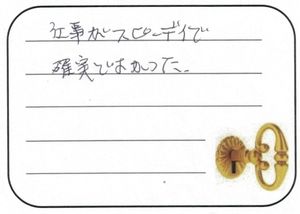 仕事がスピーディで
確実でよかった。